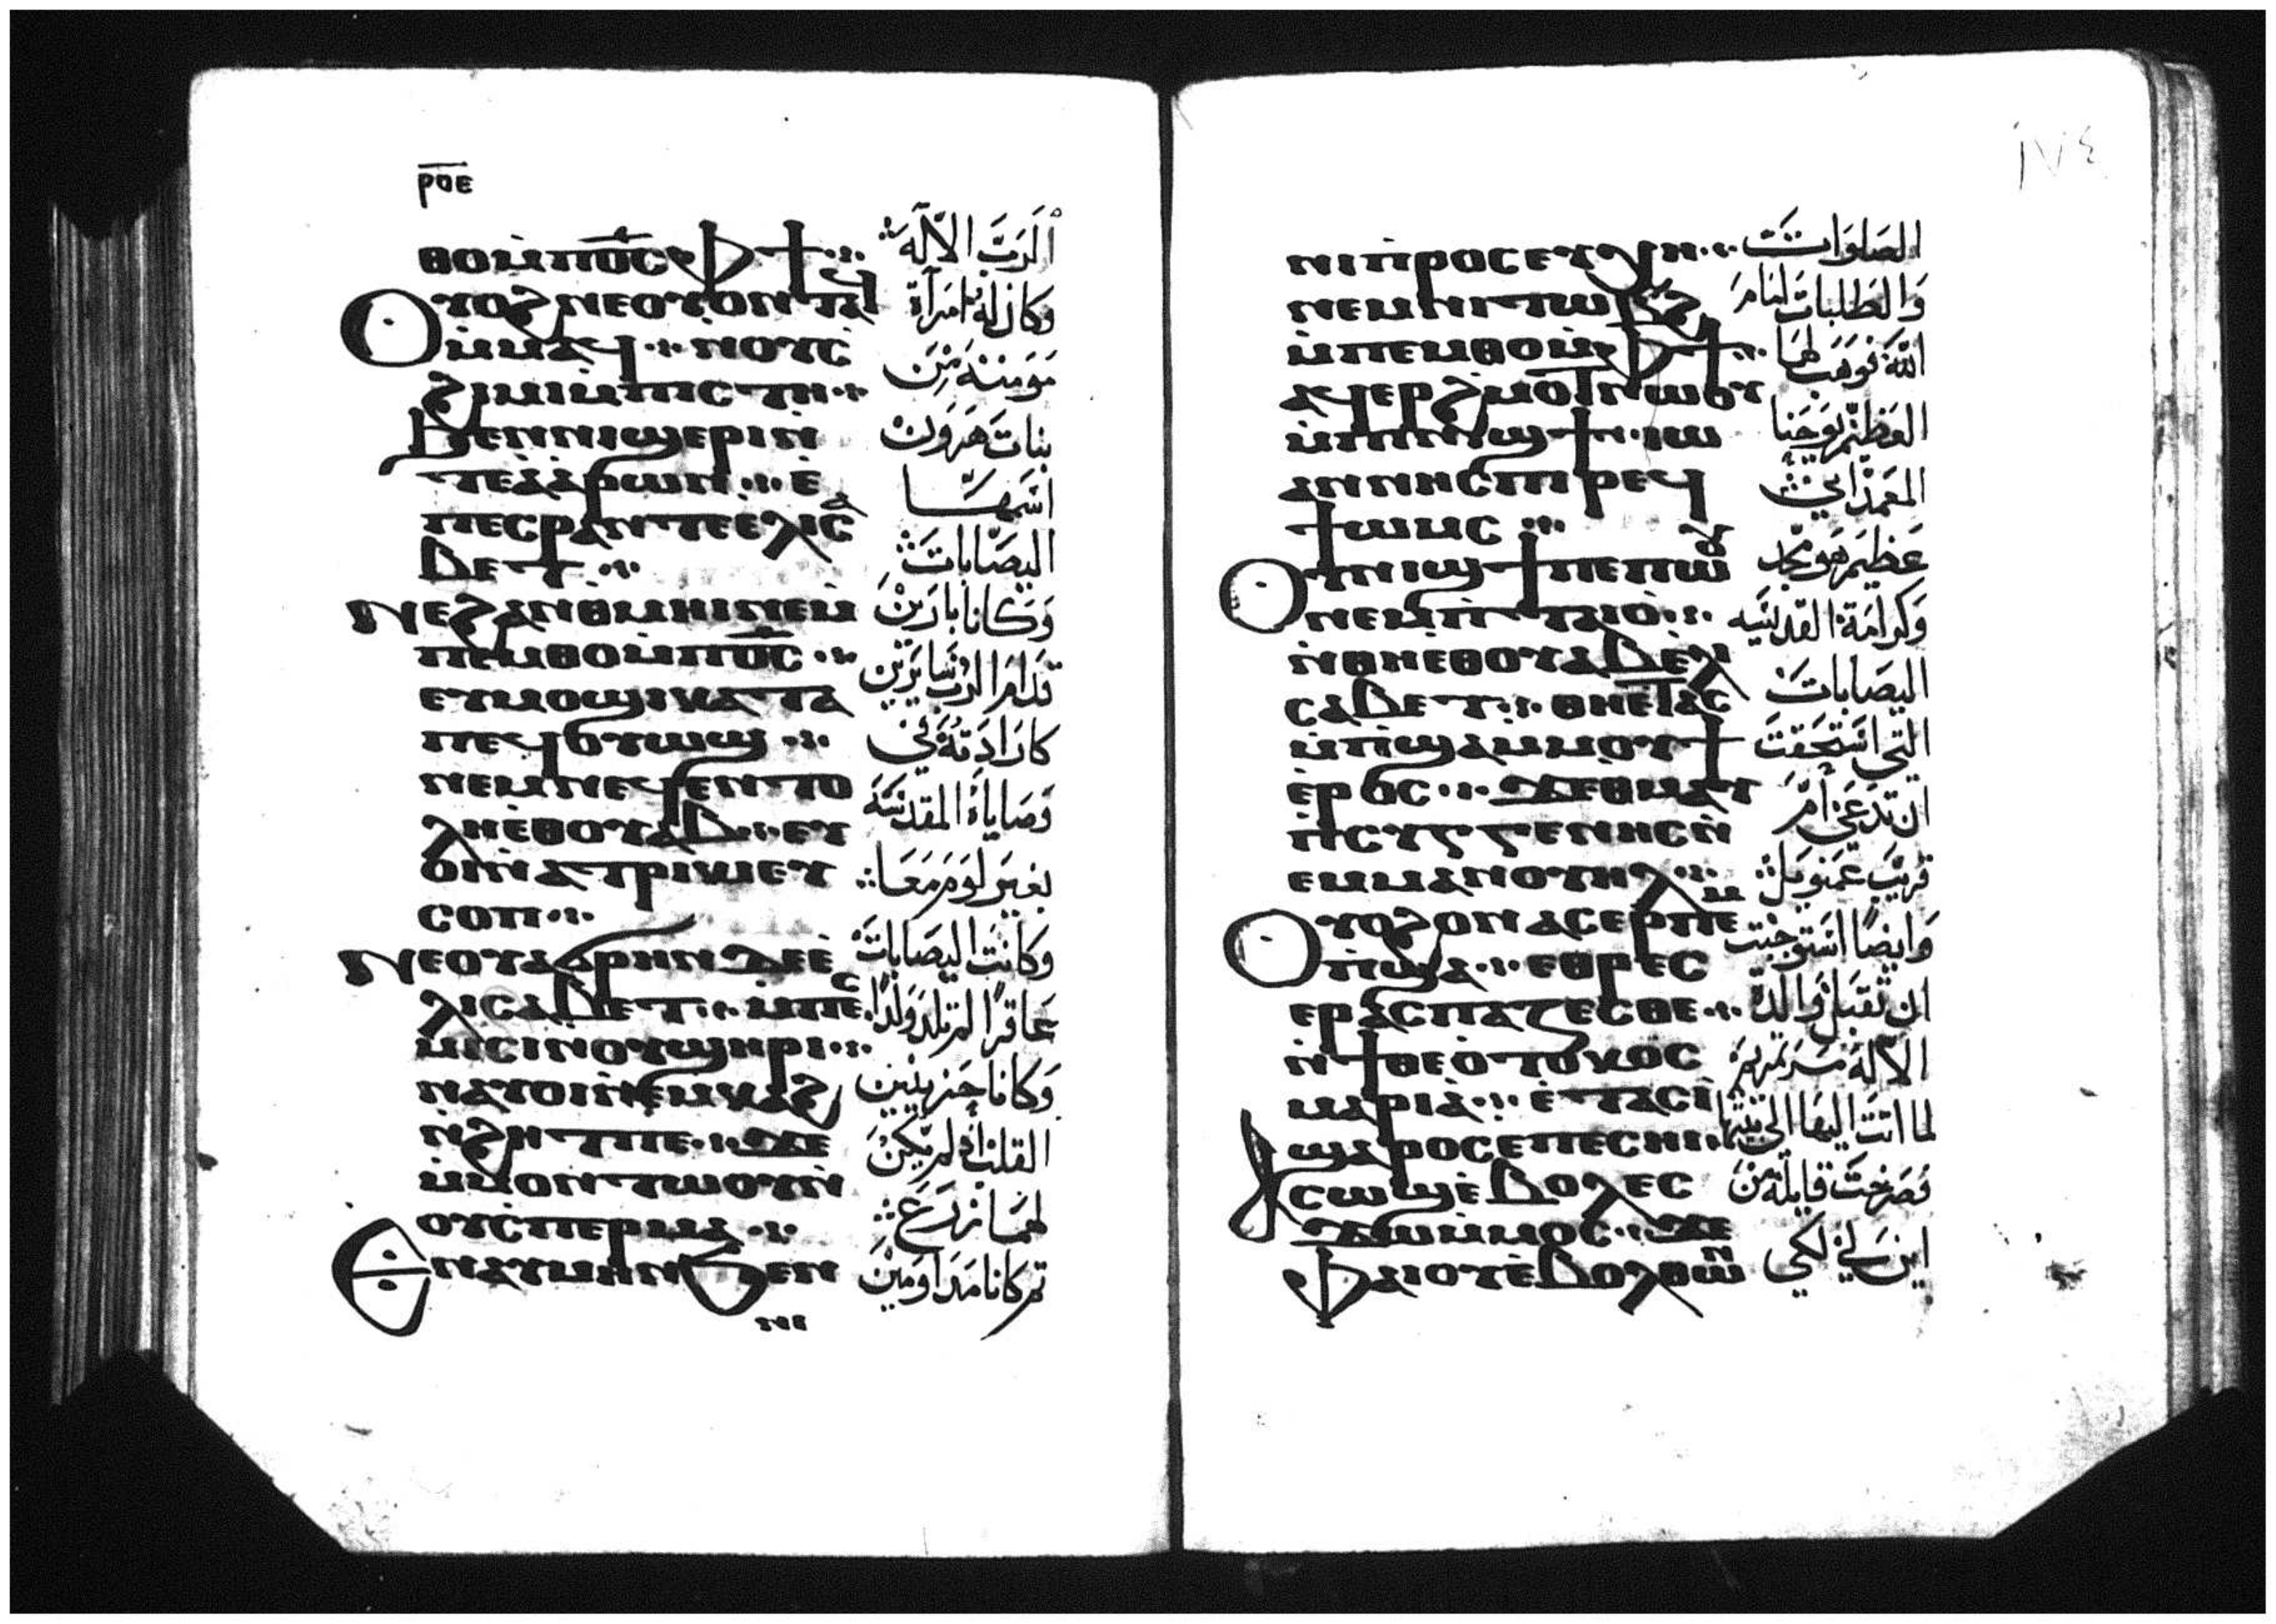 ⲣⲟⲉ
ⲑⲟⲙ̀ⲡⲟ̅ⲥ̅ ⲫϯ
ⲟⲩⲟϩ ⲛⲉⲟⲩⲟⲛ ⲧⲁϥ
ⲙ̀ⲙⲁⲩ ⲛⲟⲩⲥ
ϩⲓⲙⲓ ⲙ̀ⲡⲓⲥⲧⲏ
ϧⲉⲛ ⲛⲓϣⲉⲣⲓ ⲛ̀
ⲧⲉ ⲁⲁⲣⲱⲛ ⲉ̀
ⲡⲉⲥⲣⲁⲛ ⲡⲉ ⲉⲗⲓⲥⲁ
ⲃⲉⲧ
ⲛⲉ ϩⲁⲛⲑⲙⲏⲓ ⲛⲉⲙ̀
ⲡⲉⲙⲑⲟ ⲙ̀ⲡⲟ̅ⲥ̅
ⲉⲩⲙⲟϣⲓ ⲕⲁⲧⲁ
ⲡⲉϥⲟⲩⲱϣ
ⲛⲉⲙ ⲛⲉϥⲉⲛⲧⲟ
ⲗⲏ ⲉⲑⲟⲩⲁⲃ ⲉⲩ
ⲟⲓ ⲛ̀ⲁⲧⲣⲓⲕⲓ ⲉⲩ
ⲥⲟⲡ
ⲛⲉ ⲟⲩⲁϭⲣⲏⲛ ⲇⲉ ⲉ̀
ⲗⲓⲥⲁⲃⲉⲧ ⲙ̀ⲡⲉⲥ
ⲙⲓⲥⲓ ⲛⲟⲩϣⲏⲣⲓ
ⲛⲁⲩⲟⲓ ⲛ̀ⲉⲙⲕⲁϩ
ⲛ̀ϩⲏⲧ ⲡⲉ ϫⲉ
ⲙ̀ⲙⲟⲛ ⲧⲱⲟⲩ ⲛ̀
ⲟⲩⲥⲡⲉⲣⲙⲁ
ⲉⲛⲁⲩⲙⲏⲛ ϧⲉⲛ
ⲛⲓ
الرَبّ الالَه
وَكان له امرَآة
مَومنه مِن
بنات هَرَون
اسَمهَا
اليصَابات
وَكانا بارَيْن
قدام الرَب سَايرَين
كارَادَته في
وَصَاياهُ المقدسَة
بغيرَ لومَ مَعَا
وَكانت اليصَابات
عَاقرا لم تلد وَلدًا
وَكانا حَزينين
القلب اذ لم يكن
لهمَا زرَع
ثم كانا مَدَاومَين
١٧٤
ⲛⲓⲡⲣⲟⲥⲉⲩⲭⲏ
ⲛⲉⲙ ⲛⲓⲧⲱⲃϩ
ⲙ̀ⲡⲉⲙⲑⲟ ⲙ̀ⲫϯ
ⲁϥⲉⲣϩⲙⲟⲧ ⲛⲱⲟⲩ
ⲙ̀ⲡⲓⲛⲓϣϯ ⲓⲱ
ⲁⲛⲛⲏⲥ ⲡⲓⲣⲉϥ
ϯⲱⲙⲥ
ⲟⲩⲛⲓϣϯ ⲡⲉ ⲡⲱⲟⲩ
ⲛⲉⲙ ⲡ̀ⲧⲁⲓⲟ
ⲛ̀ⲑⲏⲉⲑⲟⲩⲁⲃ ⲉⲗⲓ
ⲥⲁⲃⲉⲧ ⲑⲏⲉⲧⲁⲥ
ⲙ̀ⲡϣⲁ ⲙ̀ⲙⲟⲩϯ
ⲉ̀ⲣⲟⲥ ϫⲉ ⲑⲙⲁⲩ
ⲡⲥⲩⲅⲅⲉⲛⲏⲥ ⲛ̀
ⲉⲙⲙⲁⲛⲟⲩⲏⲗ
ⲟⲩⲟϩ ⲟⲛ ⲁⲥⲉⲣⲡⲉⲙ
ⲡ̀ϣⲁ ⲉⲑⲣⲉⲥ
ⲉⲣⲁⲥⲡⲁⲍⲉⲥⲑⲉ
ⲛ̀ϯⲑⲉⲟ̀ⲧⲟⲕⲟⲥ
ⲙⲁⲣⲓⲁ̀ ⲉ̀ⲧⲁⲥⲓ̀
ϣⲁⲣⲟⲥ ⲉⲡⲉⲥⲏⲓ
ⲁⲥⲱϣ ⲉ̀ⲃⲟⲗ ⲉⲥ
ϫⲱ ⲙ̀ⲙⲟⲥ ϫⲉ
ⲫⲁⲓ ⲟⲩⲉ̀ⲃⲟⲗ ⲑⲱⲛ
الصَلوَات
وَالطلبات امام
الله فوَهَب لهما
العَظيم يوحَنا
المعَمدَاني
عَظيم هَو مجد
وَكرَامَة القديسَه
اليصَابات
التي استحَقت
ان تدعَي أم
قريب عَمنويل
وَايضًا استوجَبت
ان تقبل وَالدة
الاله مَريم
لما اتت اليها الى بيتها
فصَرخت قايلة من
اين لي لكي